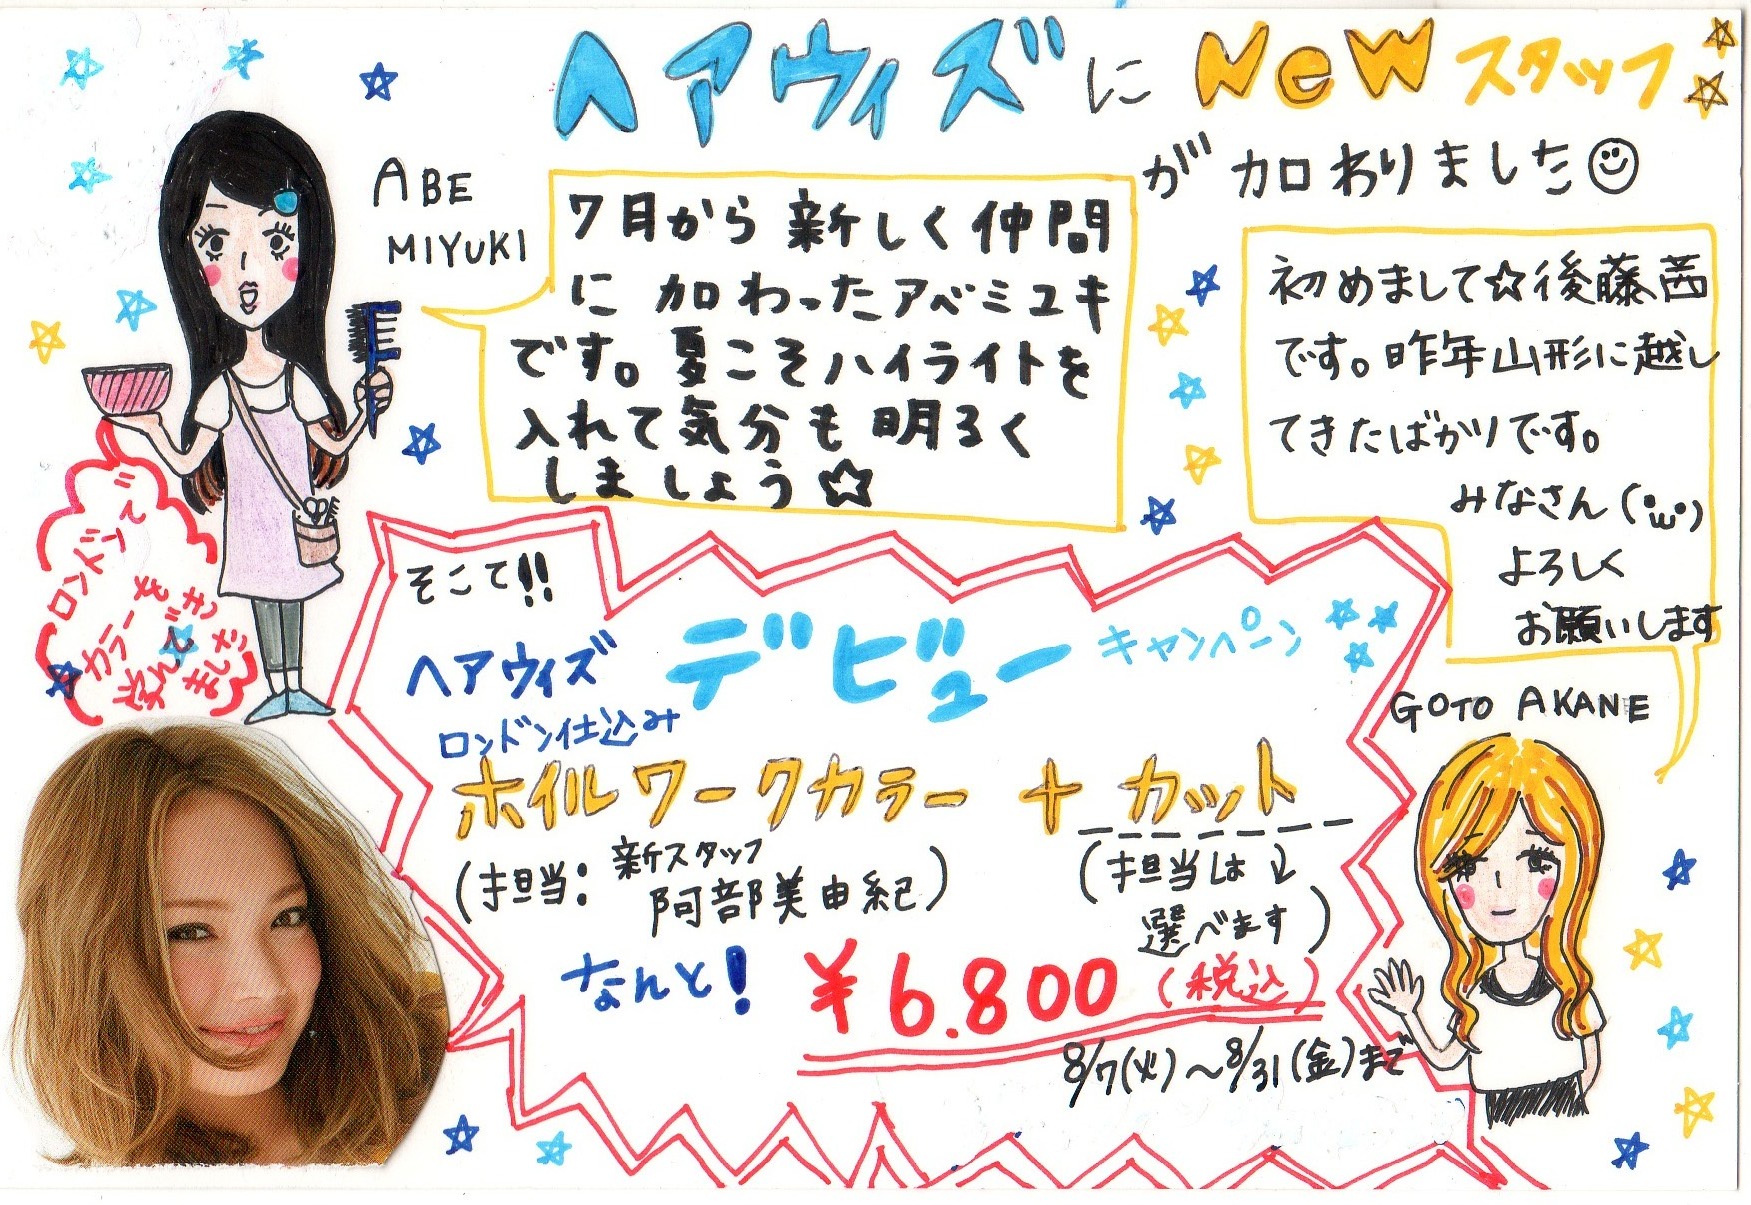 ヘアウィズにNeWスタッフ
が加わりました
ABE
MIYUKI
7月から新しく仲間
に加わったアベミユキ
です。夏こそハイライトを
入れて気分も明るく
しましょう☆
初めまして☆後藤茜
です。昨年山形に越し
てきたばかりです。
みなさん(・ω・)
よろしく
お願いします
GOTO AKANE
ロンドンで
カラーを
学んでき
ました
そこで!!
ヘアウィズ デビューキャンペーン
ロンドン仕込み
ホイルワークカラー + カット
(担当:新スタッフ
阿部美由紀)
(担当は↓
選べます)
なんと! ¥6.800(税込)
8/7(火)〜8/31(金)まで